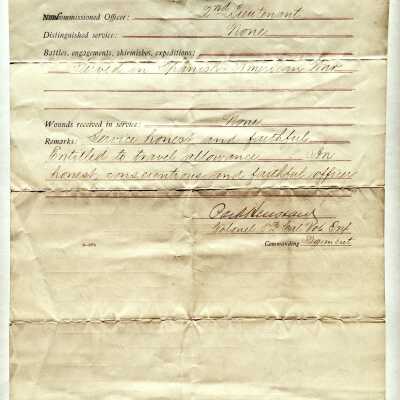 Noncommissioned Officer: 2nd Lieutenant
Distinguished service: None
Battles, engagements, skirmishes, expeditions:
Served in Spanish American War
Wounds received in service: None
Remarks: Service honest and faithful
Entitled to travel allowance. An
honest, conscientious and faithful officer
Colonel Vol Inf
Commanding Regiment